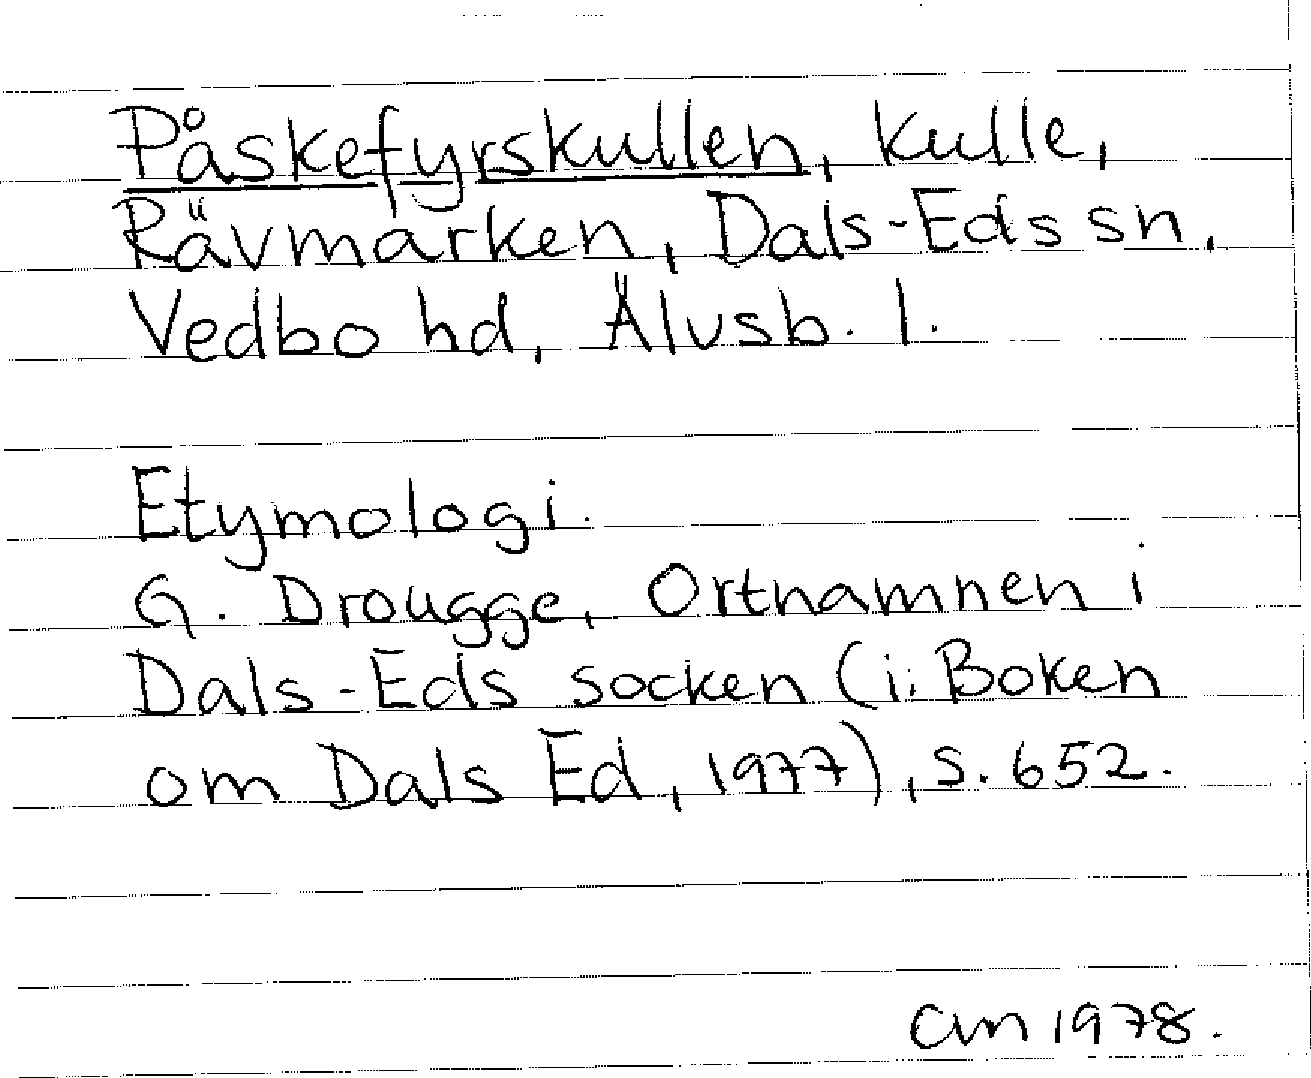 Påskefyrskullen, kulle,
Rävmarken, Dals-Eds sn,
Vedbo hd, Älvsb. l.
Etymologi.
G. Drougge, Ortnamnen i
Dals-Eds socken (i: Boken
om Dals Ed, 1977), s. 652.
1978.